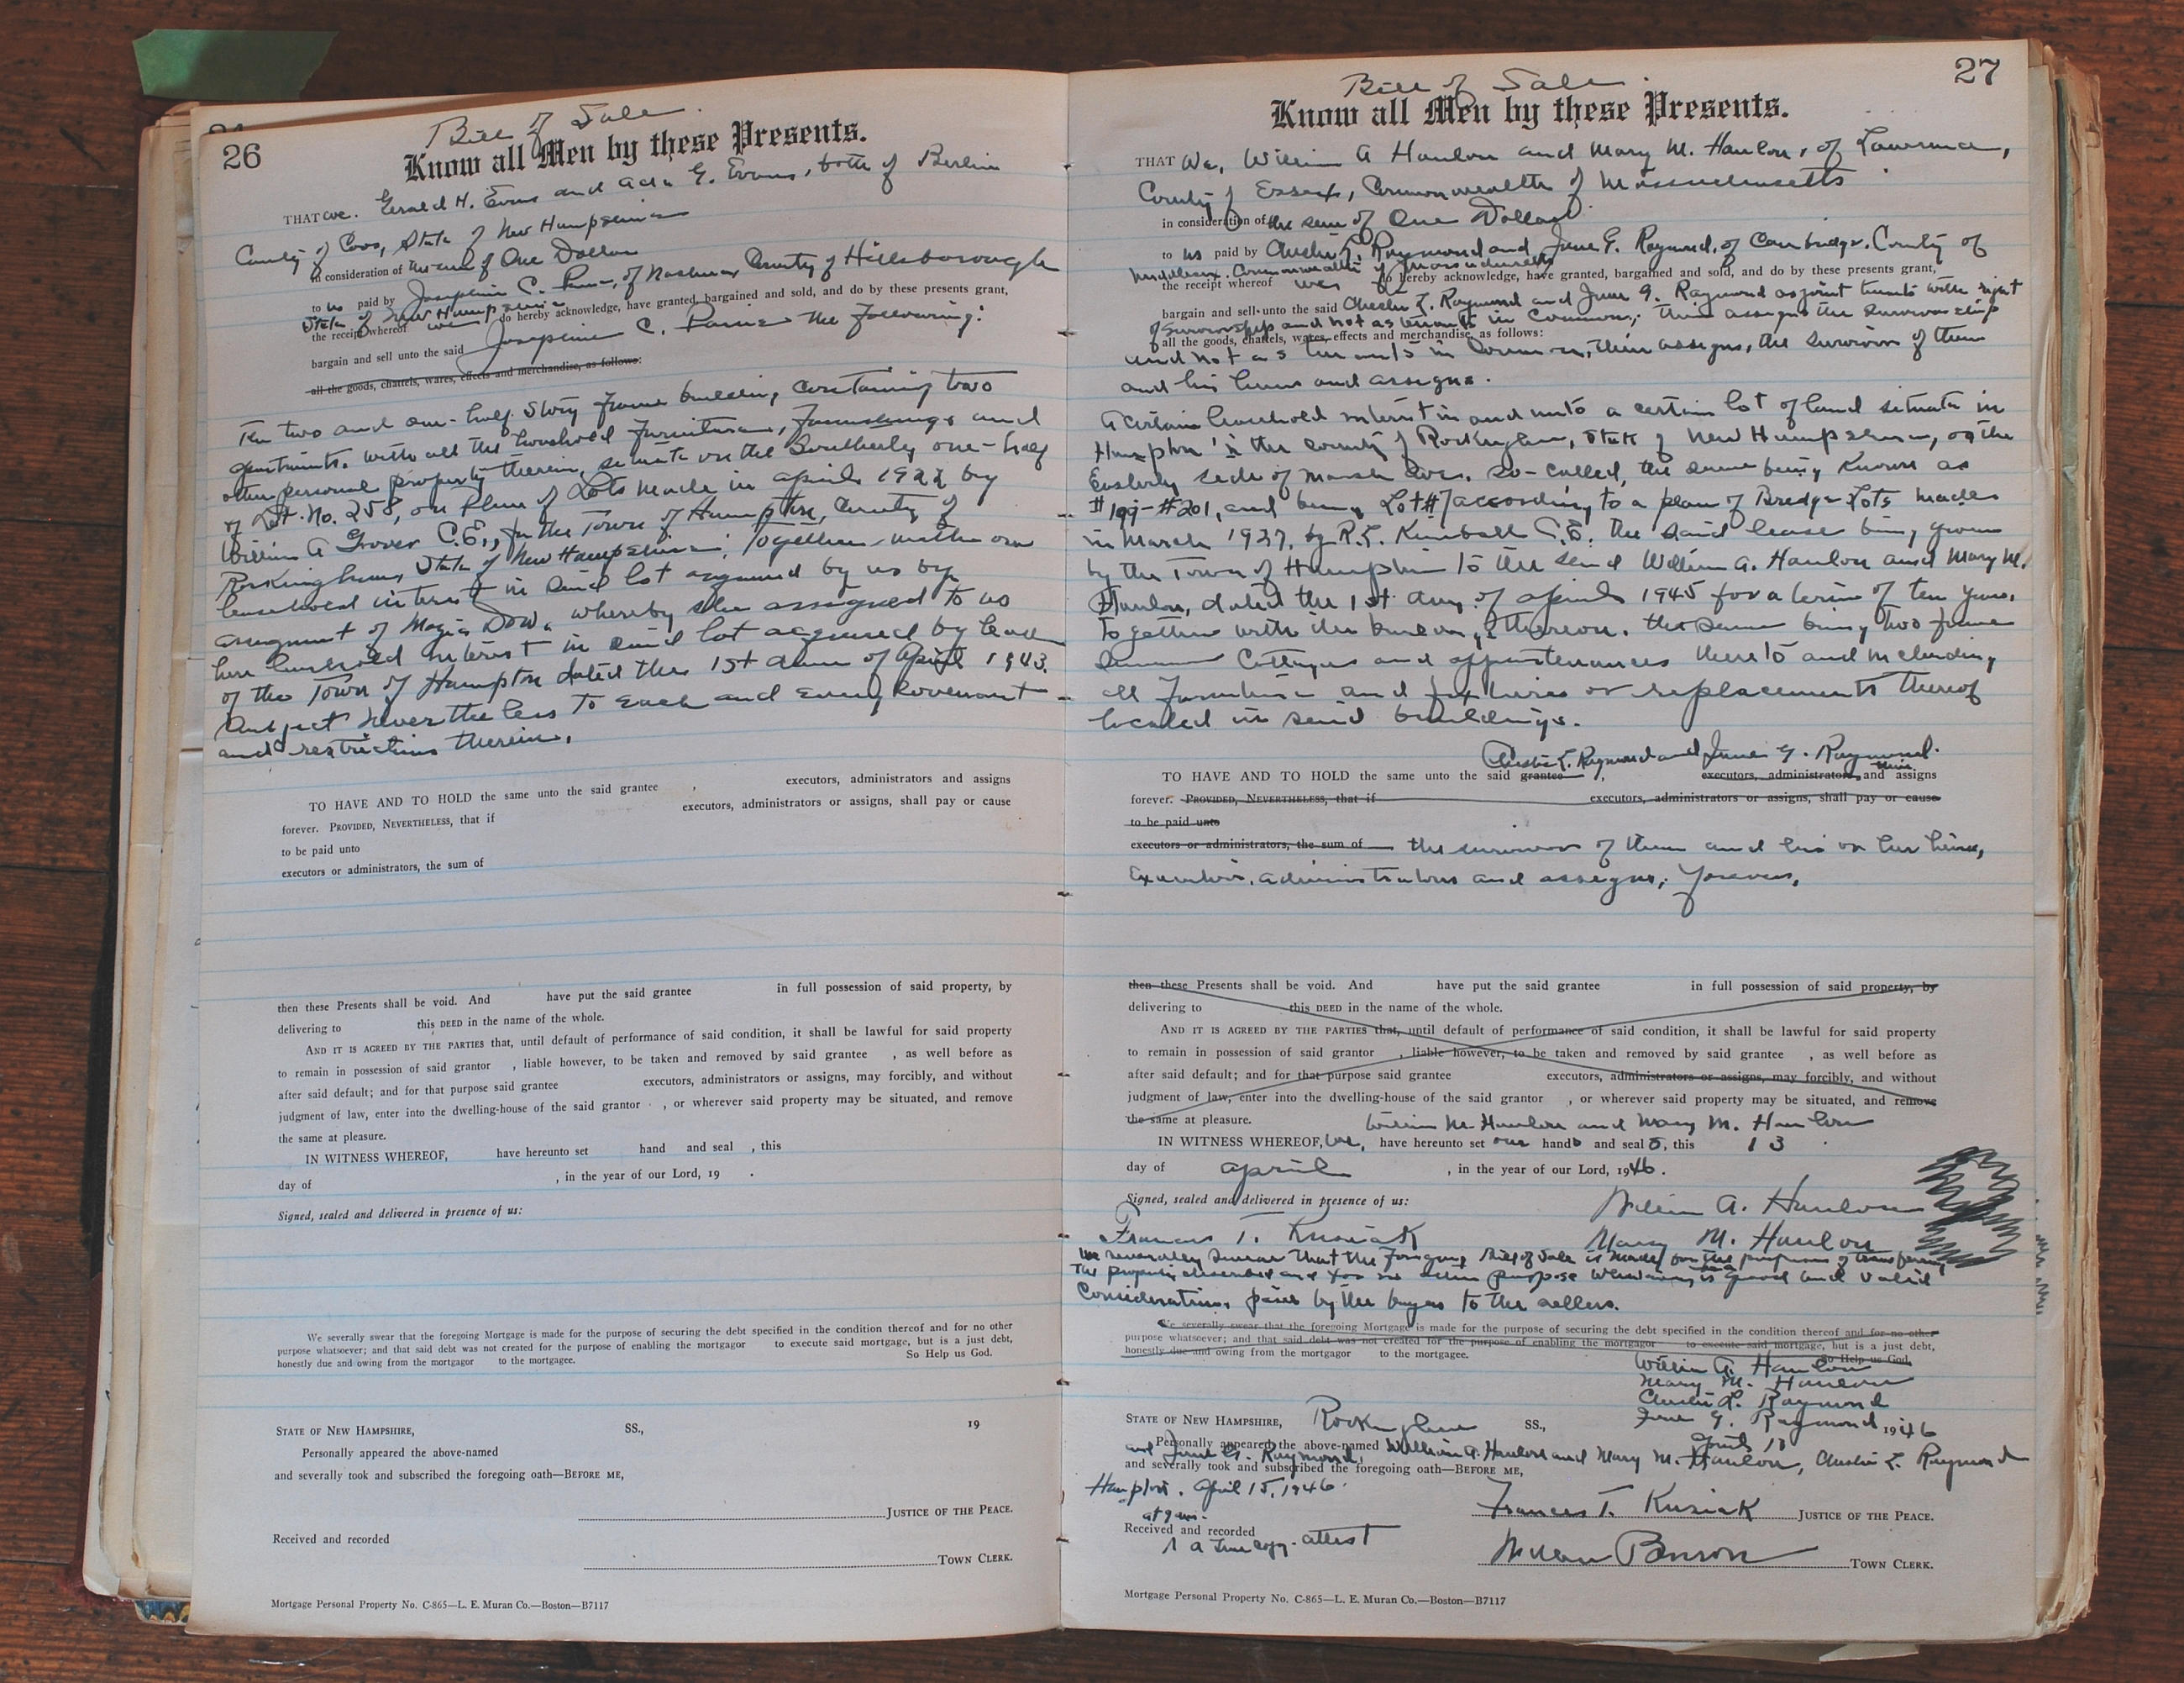 26
Bill of Sale.
Know all Men by these Presents.
THAT we. Gerald H. Evans and Ada G. Evans, both of Berlin
County of Coos, State of New Hampshire
in consideration of the sum of One Dollar
to us paid by Josephine C. of Nashua, County of Hillsborough
State of New Hampshire
the receipt whereof we do hereby acknowledge, have granted, bargained and sold, and do by these presents grant,
bargain and sell unto the said Josephine C. the following:
all the goods, chattels, wares, effects and merchandise, as follows:
The two and one-half story frame building containing two
apartments. with all the household furniture, furnishings and
other personal property therein, situate on the Southerly one-half
of Lot No. 258, on Plan of Lots made in April 1922 by
William A Grover C.E., in the Town of Hampton, County of
Rockingham, State of New Hampshire; Together with our
leasehold interest in said lot acquired by us by
assignment of Dow. whereby she assigned to us
her leasehold interest in said lot acquired by lease
of the Town of Hampton dated the 1st day of April 1943.
Subject nevertheless to each and every covenant
and restrictions therein.
TO HAVE AND TO HOLD the same unto the said grantee , executors, administrators and assigns
forever. PROVIDED, NEVERTHELESS, that if executors, administrators or assigns, shall pay or cause
to be paid unto
executors or administrators, the sum of
then these Presents shall be void. And have put the said grantee in full possession of said property, by
delivering to this DEED in the name of the whole.
AND IT IS AGREED BY THE PARTIES that, until default of performance of said condition, it shall be lawful for said property
to remain in possession of said grantor , liable however, to be taken and removed by said grantee , as well before as
after said default; and for that purpose said grantee executors, administrators or assigns, may forcibly, and without
judgment of law, enter into the dwelling-house of the said grantor , or wherever said property may be situated, and remove
the same at pleasure.
IN WITNESS WHEREOF, have hereunto set hand and seal , this
day of , in the year of our Lord, 19 .
Signed, sealed and delivered in presence of us:
We severally swear that the foregoing Mortgage is made for the purpose of securing the debt specified in the condition thereof and for no other
purpose whatsoever; and that said debt was not created for the purpose of enabling the mortgagor to execute said mortgage, but is a just debt,
honestly due and owing from the mortgagor to the mortgagee. So Help us God.
STATE OF NEW HAMPSHIRE, SS., 19
Personally appeared the above-named
and severally took and subscribed the foregoing oath—BEFORE ME,
JUSTICE OF THE PEACE.
Received and recorded
TOWN CLERK.
Mortgage Personal Property No. C-865—L. E. Muran Co.—Boston—B7117
27
Bill of Sale.
Know all Men by these Presents.
THAT We, William A Hanlon and Mary M. Hanlon, of Lawrence,
County of Essex, Commonwealth of Massachusetts
in consideration of the sum of One Dollar
to us paid by Chester L. Raymond and June G. Raymond, of Cambridge, County of
Middlesex, Commonwealth of Massachusetts
the receipt whereof we do hereby acknowledge, have granted, bargained and sold, and do by these presents grant,
bargain and sell unto the said Chester L. Raymond and June G. Raymond as joint tenants with right
of survivorship and not as tenants in common; their assigns the survivorship
all the goods, chattels, wares, effects and merchandise, as follows:
and not as tenants in common, their assigns, the survivor of them
and his heirs and assigns.
A certain leasehold interest in and unto a certain lot of land situate in
Hampton in the county of Rockingham, State of New Hampshire, on the
Easterly side of Marsh Ave. so-called, the same being known as
#199-#201, and being Lot #7 according to a plan of Bridge Lots made
in March 1937, by R.L. Kimball C.E. the said lease being given
by the Town of Hampton to the said William A. Hanlon and Mary M.
Hanlon, dated the 1st day of April 1945 for a term of ten years.
Together with the buildings thereon. the same being two frame
summer Cottages and appurtenances thereto and including
all furniture and fixtures or replacements thereof
located in said buildings.
Chester L. Raymond and June G. Raymond.
TO HAVE AND TO HOLD the same unto the said grantee , executors, administrators, and their assigns
forever. PROVIDED, NEVERTHELESS, that if executors, administrators or assigns, shall pay or cause
to be paid unto
executors or administrators, the sum of the survivor of them and his or her heirs,
Executors, administrators and assigns, forever.
then these Presents shall be void. And have put the said grantee in full possession of said property, by
delivering to this DEED in the name of the whole.
AND IT IS AGREED BY THE PARTIES that, until default of performance of said condition, it shall be lawful for said property
to remain in possession of said grantor , liable however, to be taken and removed by said grantee , as well before as
after said default; and for that purpose said grantee executors, administrators or assigns, may forcibly, and without
judgment of law, enter into the dwelling-house of the said grantor , or wherever said property may be situated, and remove
the same at pleasure. William M. Hanlon and Mary M. Hanlon
IN WITNESS WHEREOF, we, have hereunto set our hands and seals, this 13
day of April , in the year of our Lord, 1946.
Signed, sealed and delivered in presence of us:
William A. Hanlon
Frances T. Kusiak Mary M. Hanlon
We severally swear that the foregoing Bill of Sale is made for the purpose of transferring
the property described and for no other purpose whatsoever is good and valid
Consideration, paid by the buyers to the sellers.
We severally swear that the foregoing Mortgage is made for the purpose of securing the debt specified in the condition thereof and for no other
purpose whatsoever; and that said debt was not created for the purpose of enabling the mortgagor to execute said mortgage, but is a just debt,
honestly due and owing from the mortgagor to the mortgagee. So Help us God.
William A. Hanlon
Mary M. Hanlon
Chester L. Raymond
June G. Raymond
STATE OF NEW HAMPSHIRE, Rockingham SS., April 13 1946
Personally appeared the above-named William A. Hanlon and Mary M. Hanlon, Chester L. Raymond
and June G. Raymond,
and severally took and subscribed the foregoing oath—BEFORE ME,
Hampton. April 15, 1946.
at 9 am.
Frances T. Kusiak JUSTICE OF THE PEACE.
Received and recorded
A true copy. attest
Benson TOWN CLERK.
Mortgage Personal Property No. C-865—L. E. Muran Co.—Boston—B7117